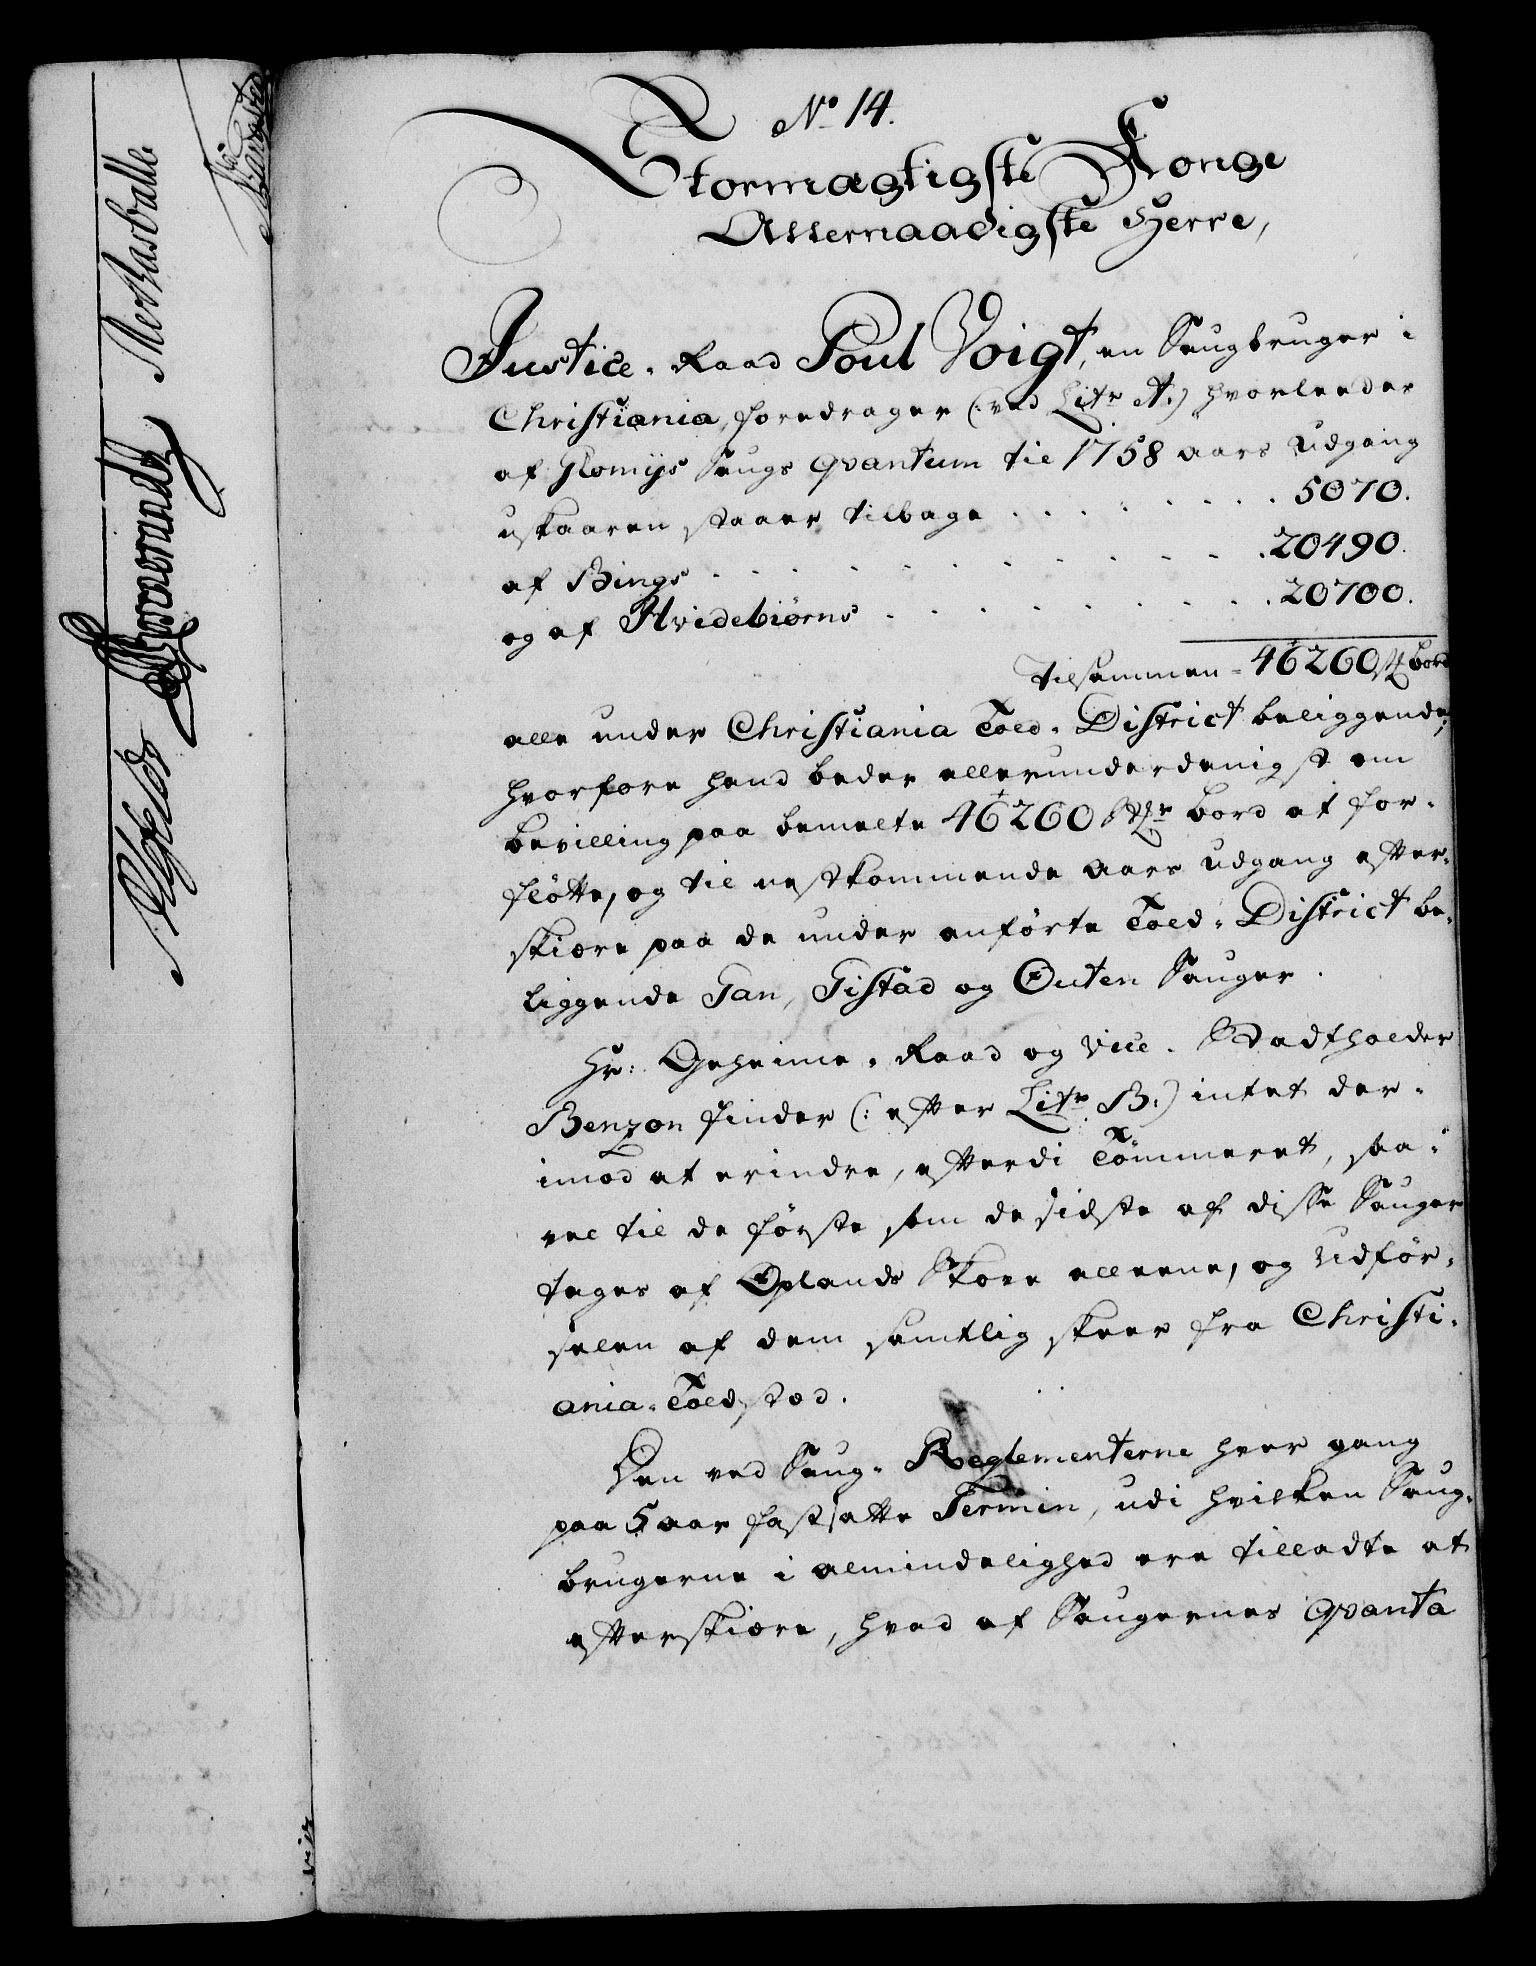 No 14.
Stormægtigste Konge
Allernaadigste Herre,
Justice-Raad Poul Voigt, en Saugbruger i
Christiania, foredrager (: ved Litr A:) hvorleedes
af Glomijs Saugs qvantum til 1758 aars Udgang
uskaaren staaer tilbage . . . . . . . 5070.
af Bings . . . . . . . . . . 20490.
og af Hvidebiørns . . . . . . . . 20700.
Tilsammen - 46260 st bord
alle under Christiania Told-District beliggende,
hvorfore hand beder allerunderdanigst om
bevilling paa bemelte 46260 Str bord at for-
flötte, og til nestkommende aars udgang efter-
skiære paa de under anførte Told-District be-
liggende Gan, Gistad og Outen Sauger.
Hr: Geheime-Raad og Vice-Stadtholder
Benzon finder (: efter Litr B:) intet der-
imod at erindre, efterdi Tömmeret, saa-
vel til de første som de sidste af disse Sauger
tages af Oplands Skove alleene, og Udför-
selen af dem samtlig skeer fra Christi-
ania-Toldsted.
Den ved Saug-Reglementerne hver gang
paa 5 aar fastsatte Termin, udi hvilken Saug-
brugerne i almindelighed ere tilladte at
efterskiære, hvad af Saugernes qvanta